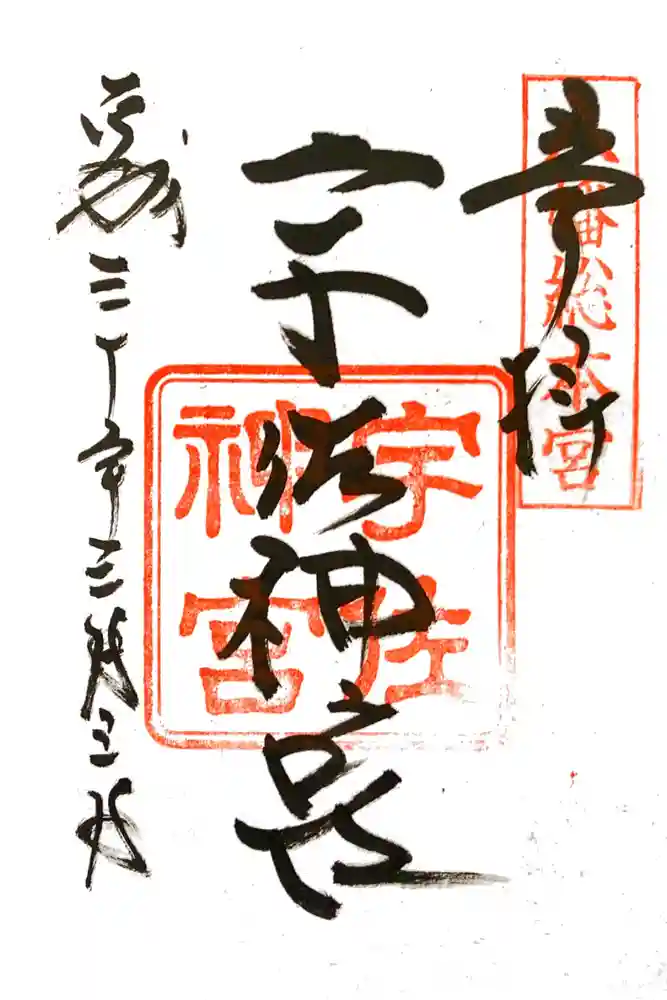 奉拝
八幡総本宮
宇佐神宮
宇佐神宮
平成三十年三月三日